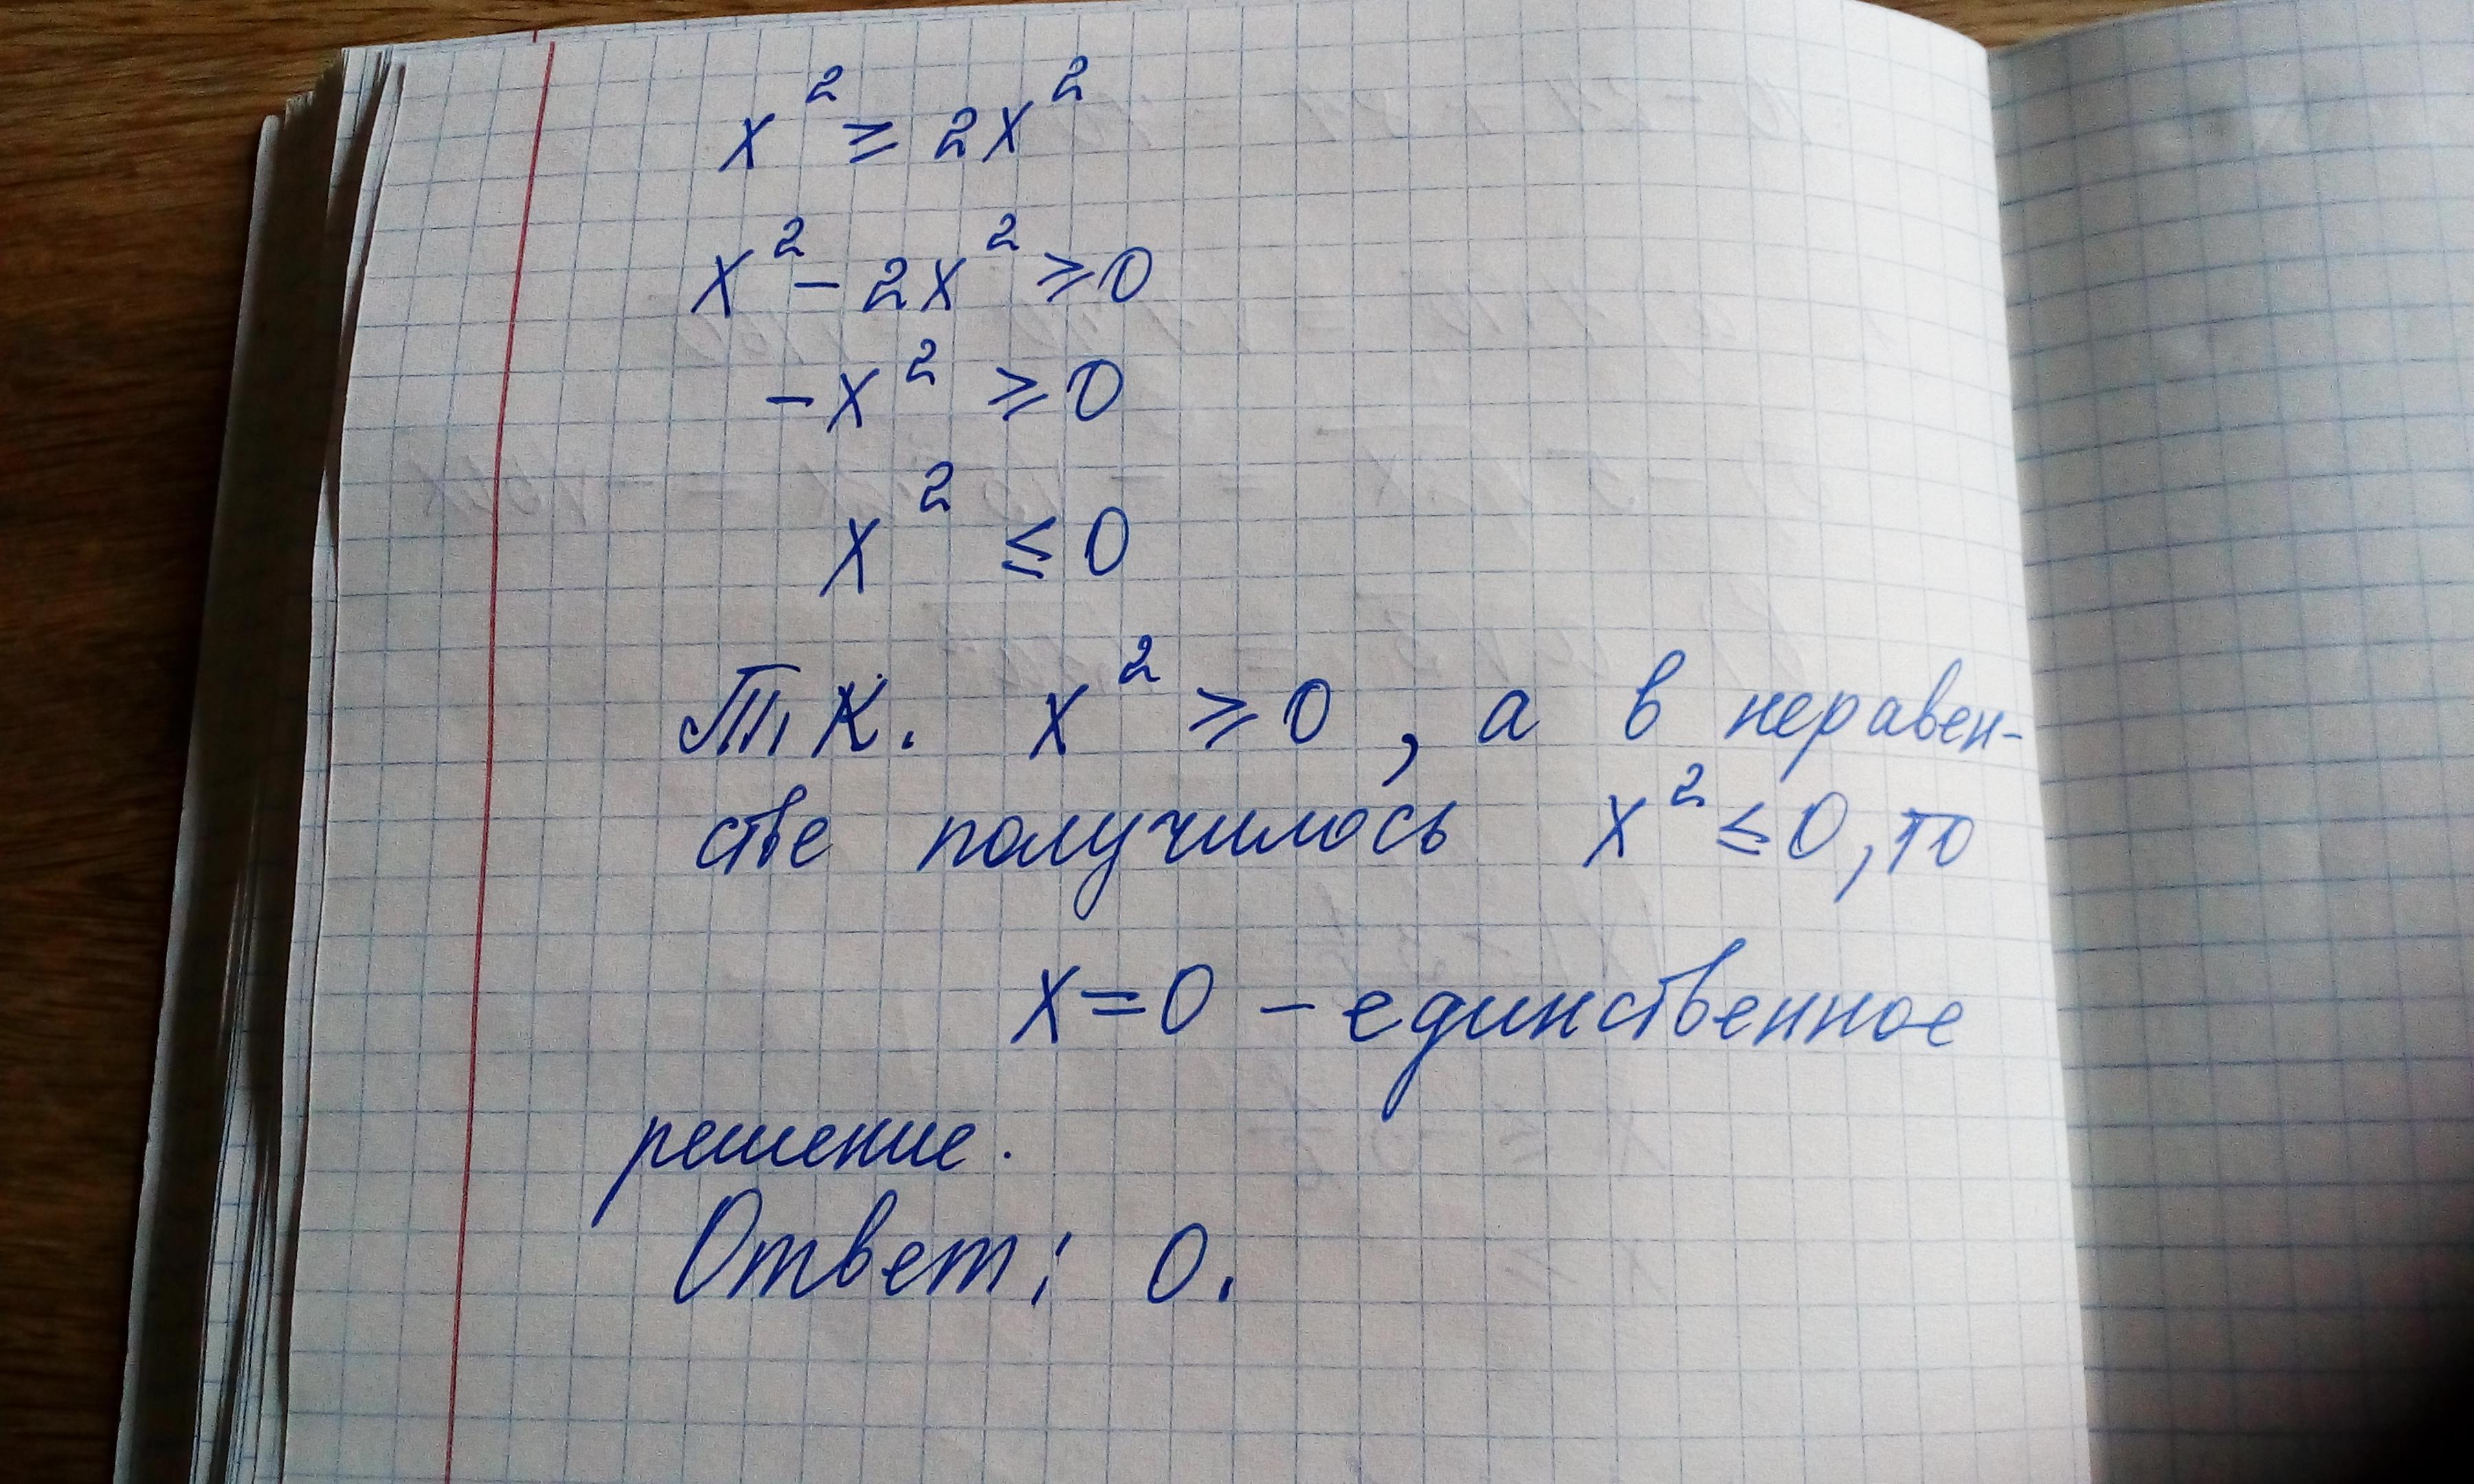 x² ≥ 2x²
x² - 2x² ≥ 0
-x² ≥ 0
x² ≤ 0
Т.К. x² ≥ 0, а в неравен-
стве получилось x² ≤ 0, то
x = 0 - единственное
решение.
Ответ: 0.